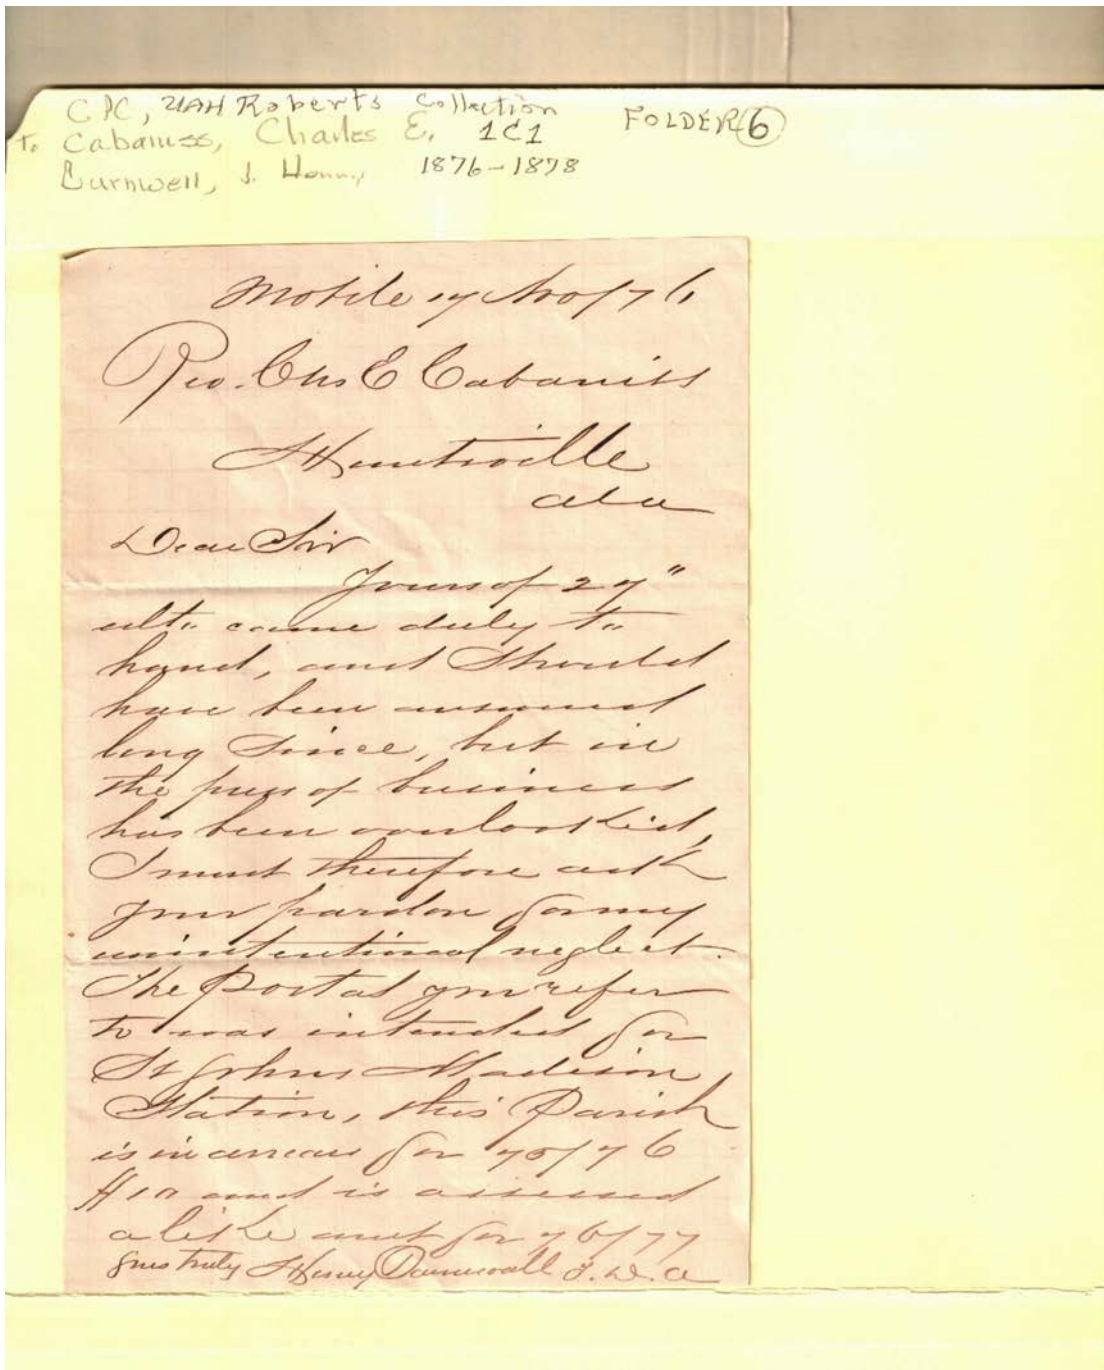 CPC, UAH Roberts Collection
FOLDER 6
To Cabaniss, Charles E. 1C1
J. 1876-1878
Mobile 17 Nov / 76
Rev. Chs E Cabaniss
Huntsville
ala
Dear Sir
Yours of 27"
ulto. came duly to
hand, and Should
have been answered
long Since, but in
the press of business
has been overlooked,
I must therefore ask
your pardon for my
unintentional neglect.
The Postal you refer
to was intended for
St Johns Madison
Station, this Parish
is in arrear for 75/76
$10 and is assessed
a like amt for 76/77
Yrs truly Henry T. D. A